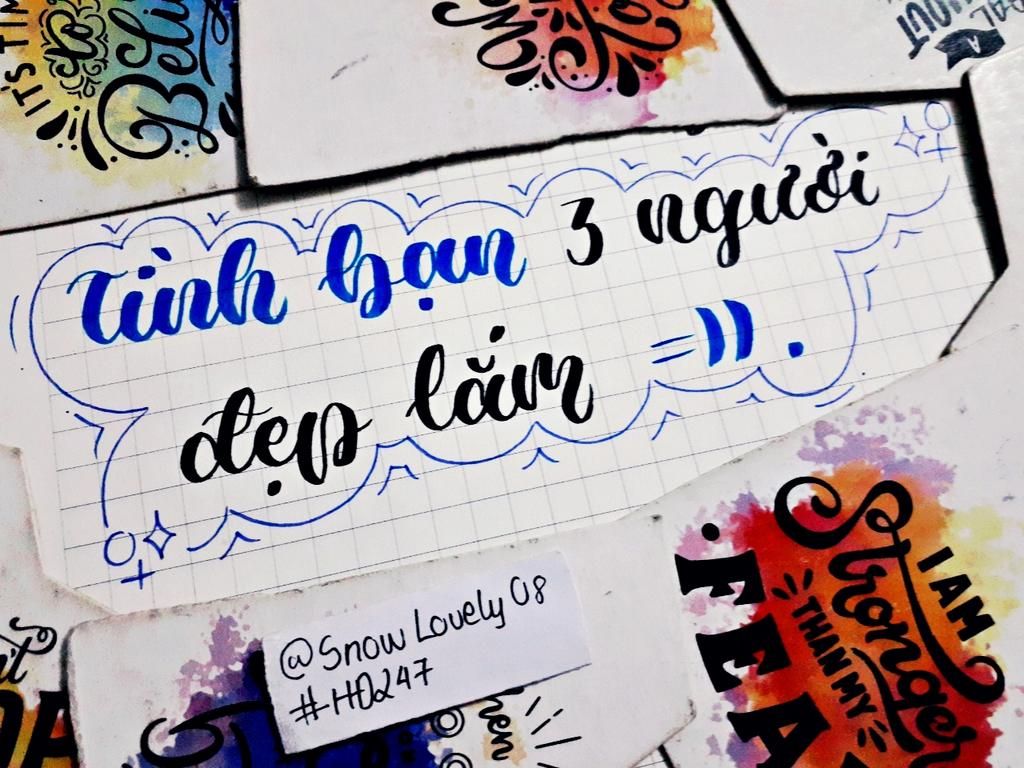 IT'S TIM
to
Beli
A
Tình bạn 3 người
đẹp lắm =)).
@Snow Lovely 08
#HD247
I AM
Stronger
THAN MY
FEA
hen